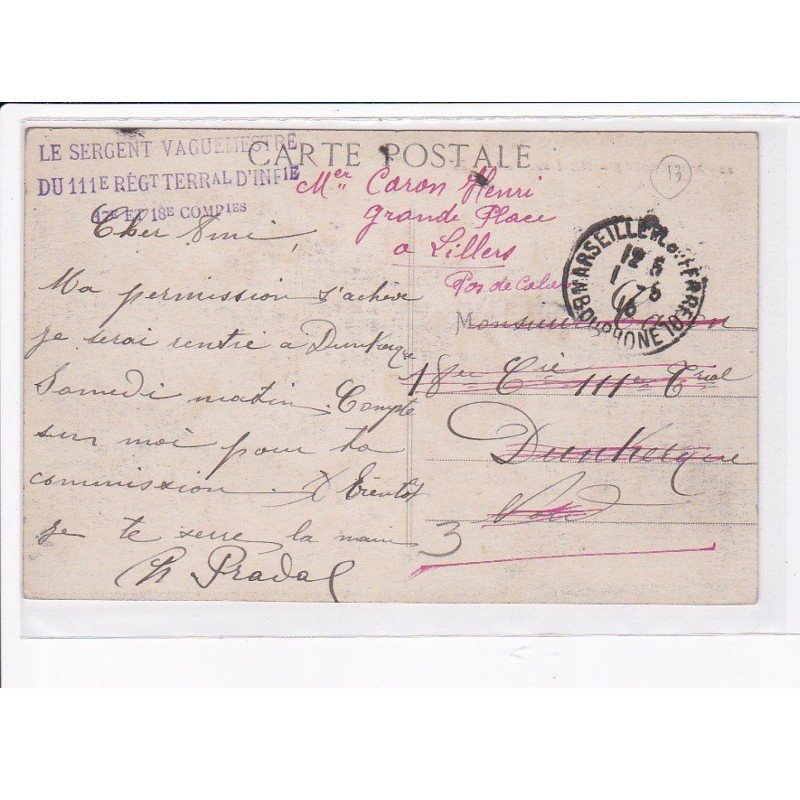 LE SERGENT VAGUEMESTRE
DU 111E RÉGT TERRAL D'INFIE
17E ET 18E COMPIES
CARTE POSTALE
13
Mer Caron Henri
Grande Place
a Lillers
Pas de Calais
MARSEILLE
BOUCHES DU RHONE
12 5
1 - 5
16
Cher Ami,
Ma permission s'achève
je serai rentré a Dunkerque
Samedi matin. Compte
sur moi pour ta
commission. A bientot
je te serre la main
H Pradal
Monsieur Caron
18me Cie 111me Trial
Dunkerque
Nord
3